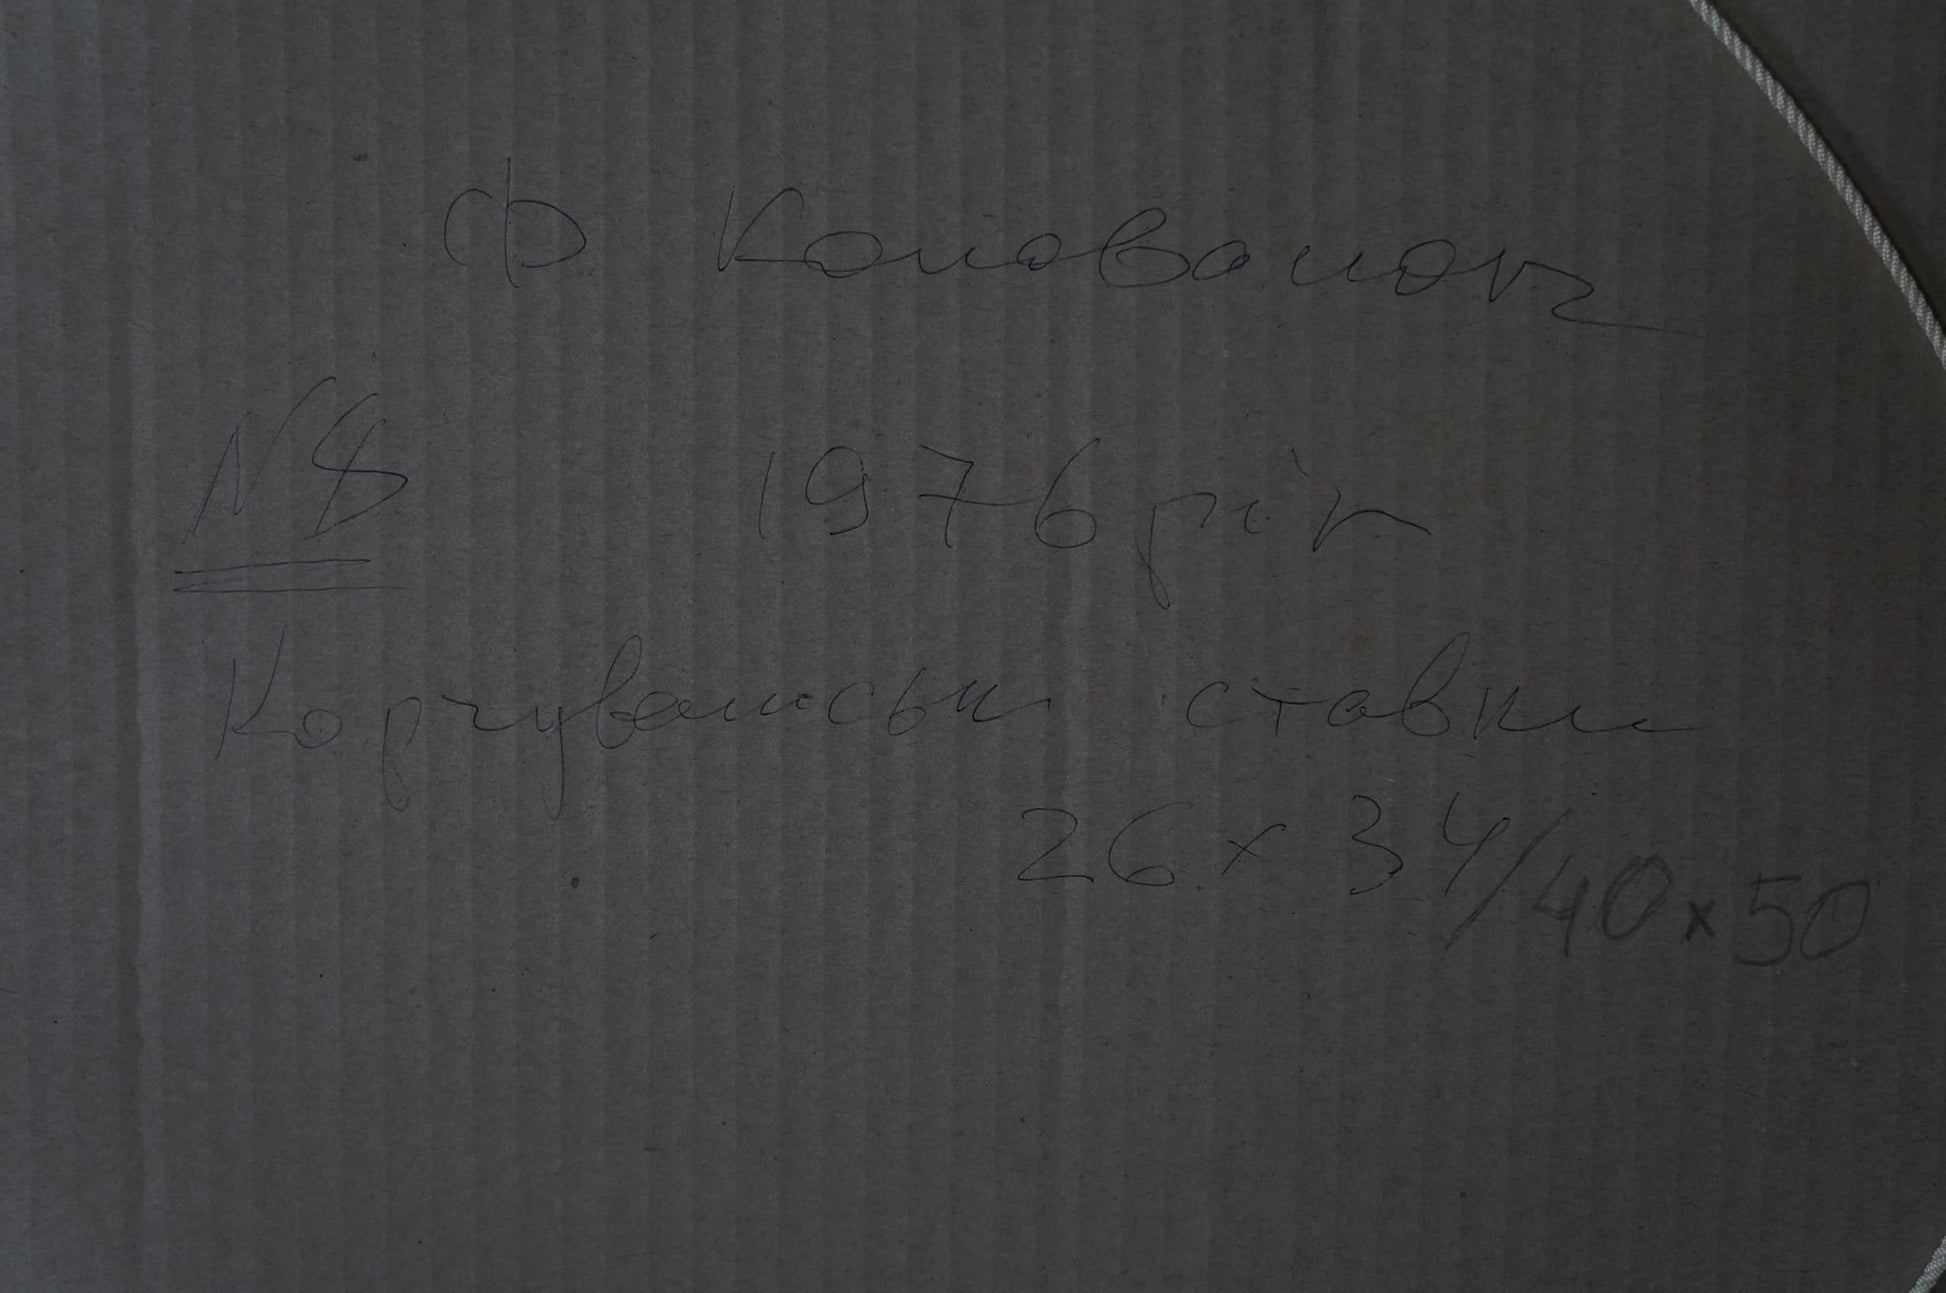 Ф Коновалюк
N 8 1976 рік
Корчуватські ставки
26 x 34/40 x 50